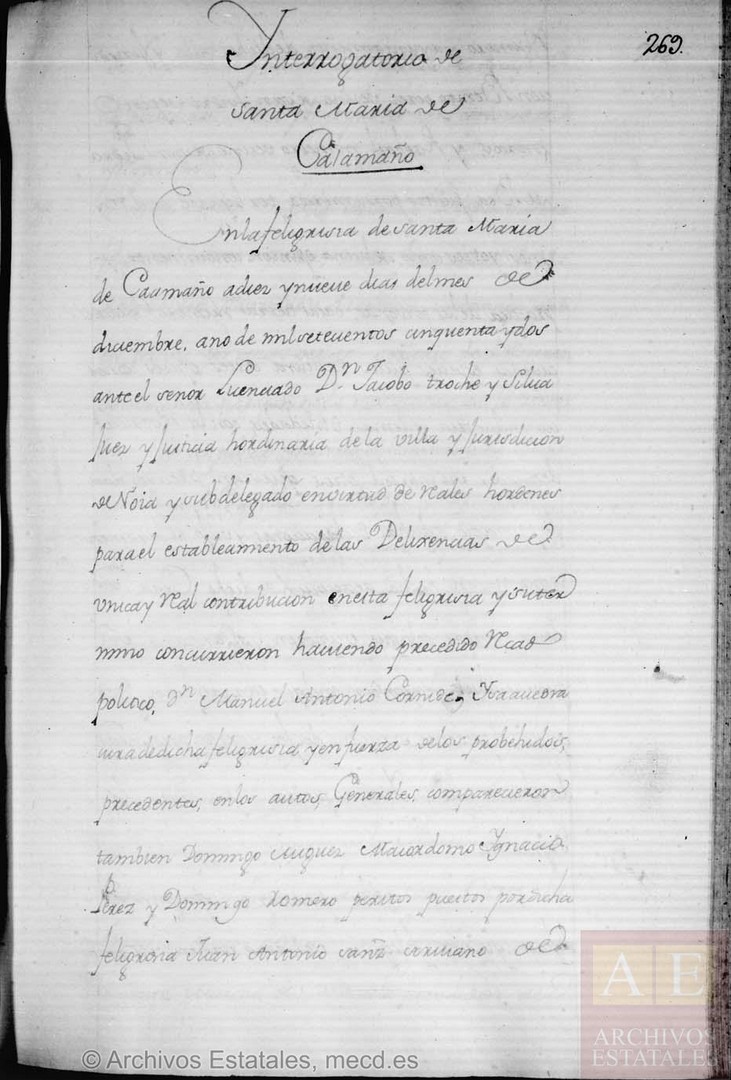 269.
Interrogatorio de
Santa Maria de
Caamaño
En la feligrisia de Santa Maria
de Caamaño a diez y nueve dias del mes de
diciembre, ano de mil setecientos cinquenta y dos
ante el senor Licenciado Dn Jacobo troche y Silva
Juez y Justicia hordinaria de la villa y Jurisdicion
de Noia y subdelegado en virtud de Reales hordenes
para el estableamiento de las Delixencias de
Unica y Real contribucion en esta feligrisia y su ter
mino concurrieron haviendo precedido Recado
politico, Dn Manuel Antonio Cornide y
cura de dicha feligrisia y en fuerza de los probehidos,
precedentes, en los autos, Generales, comparecieron
tambien Domingo Maiordomo Ygnacio
Perez y Domingo Romero peritos puestos por dicha
feligresia Juan Antonio Sanz escriuano de
© Archivos Estatales, mecd.es
AE
ARCHIVOS
ESTATALES